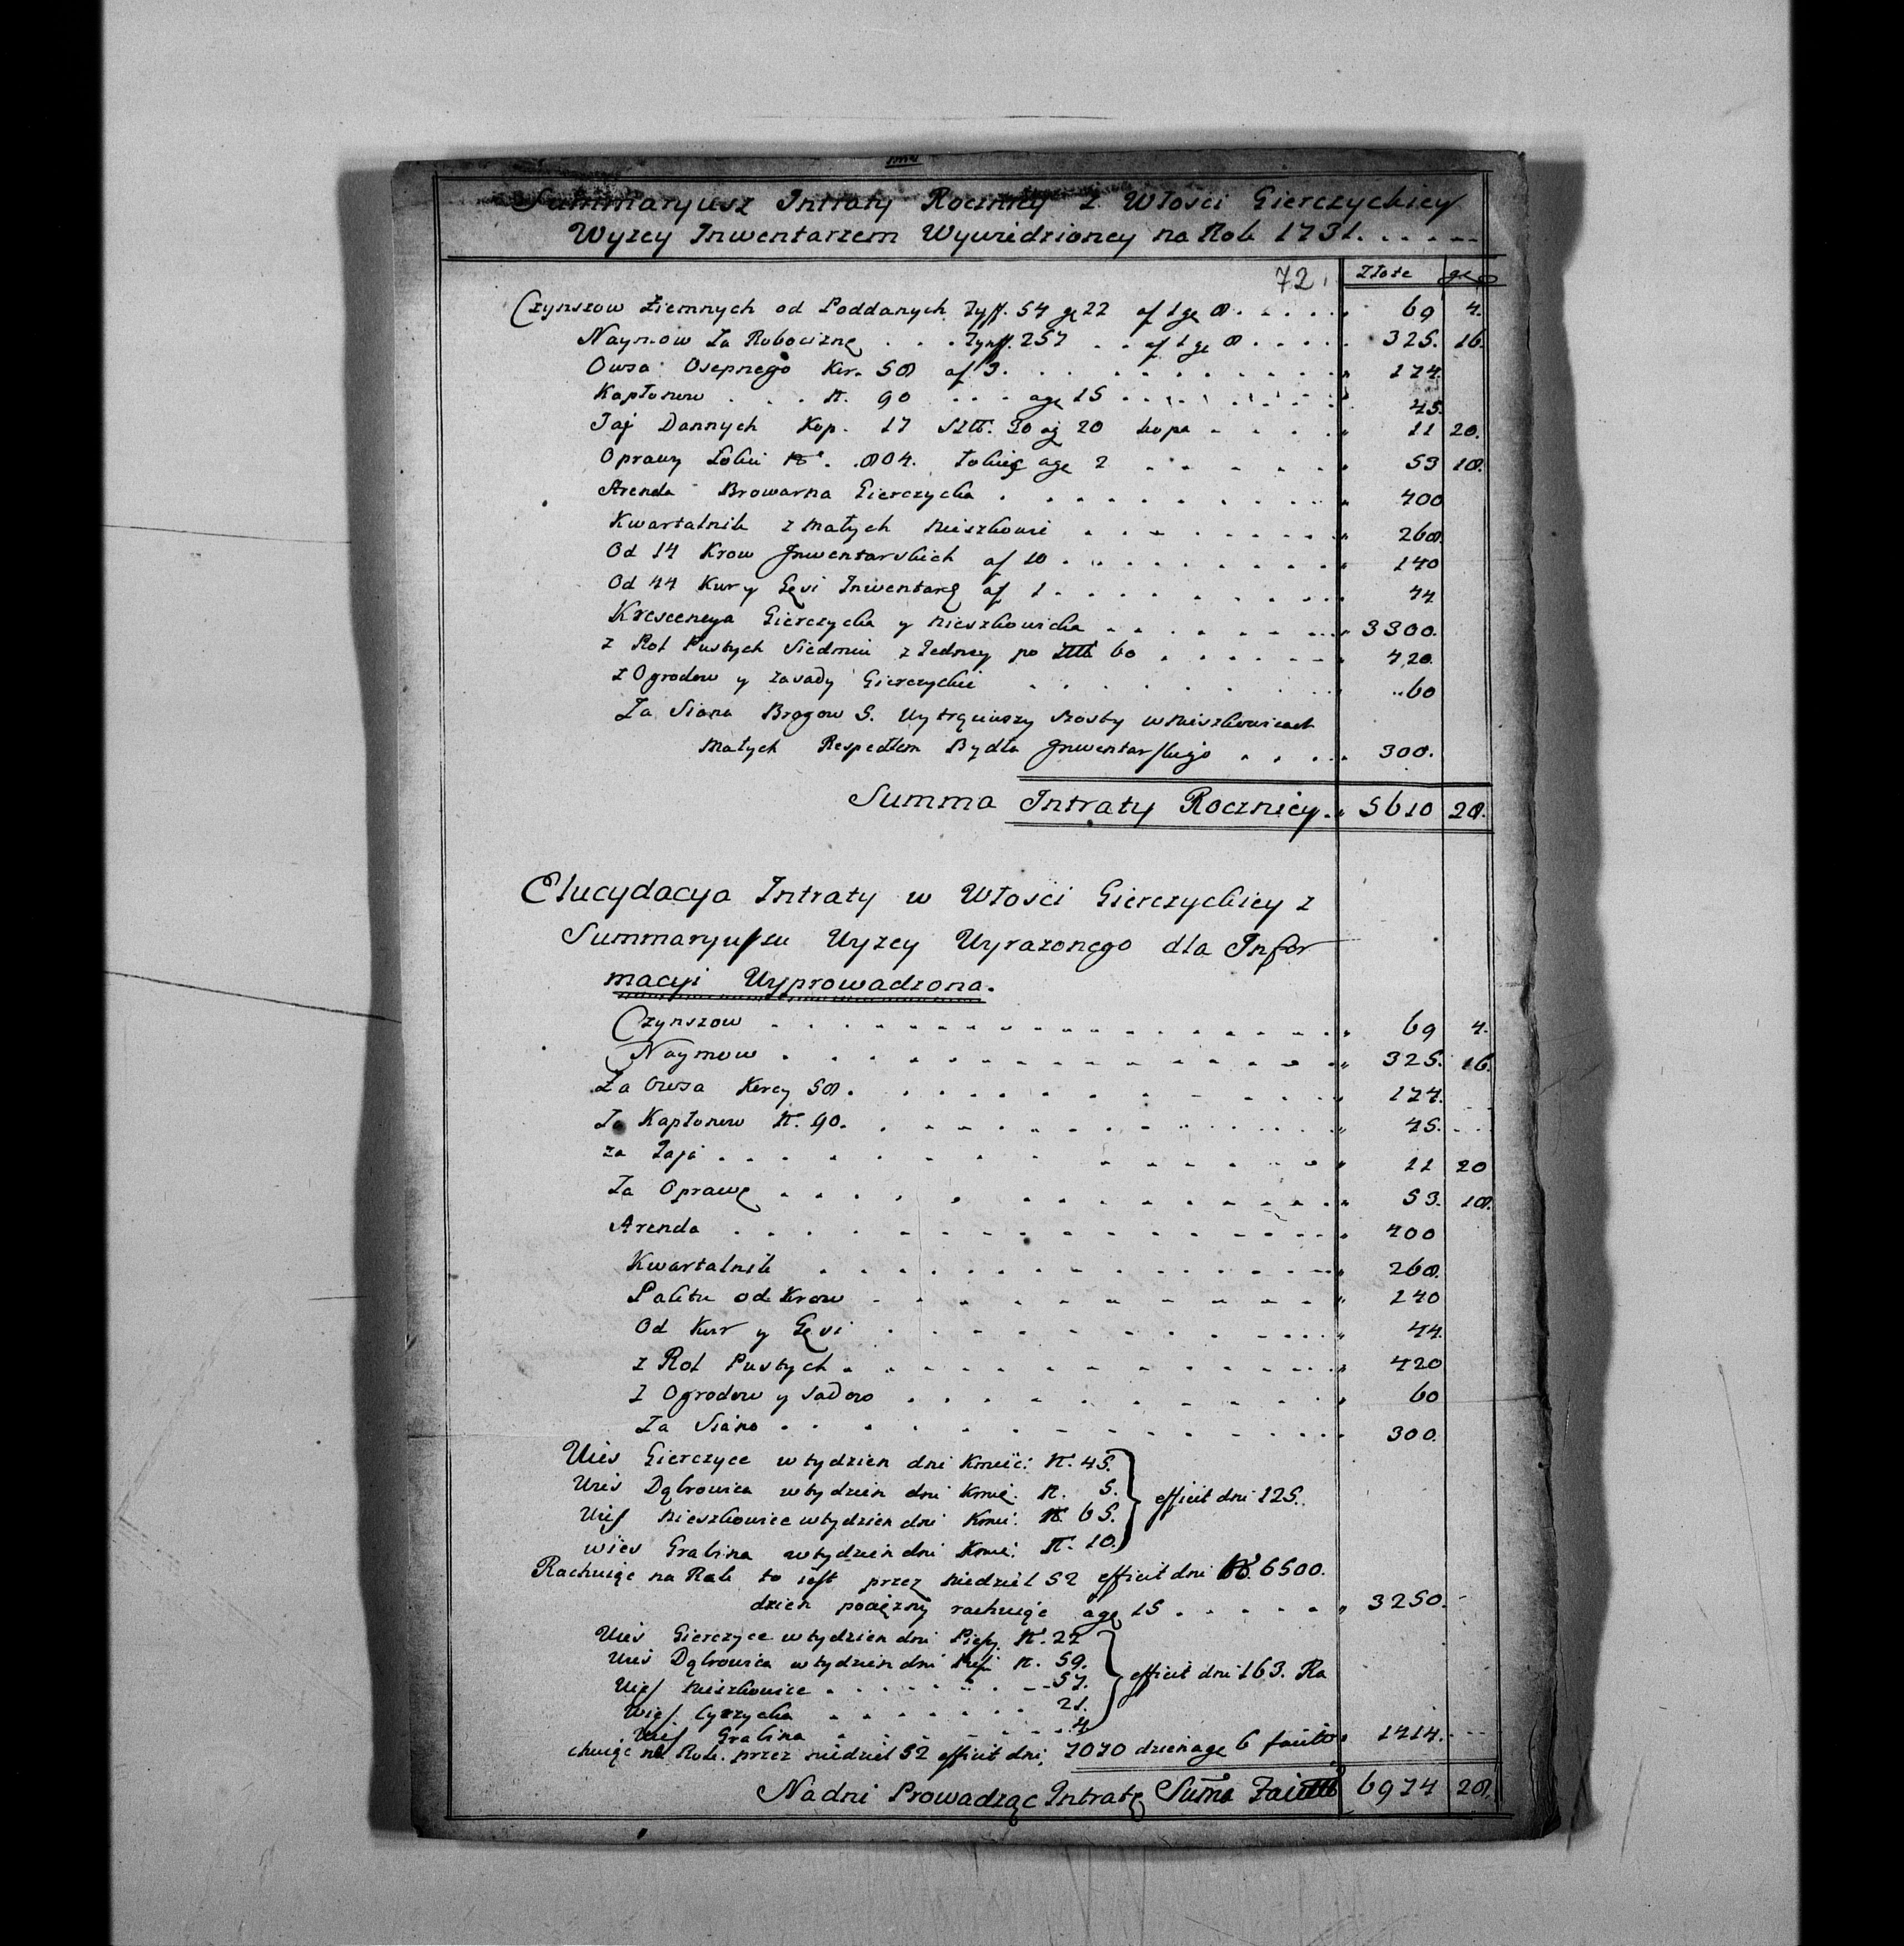 Summaryusz Intraty Roczney z Włości Gierczyckiey
Wyzey Inwentarzem Wywiedzioney na Rok 1731.
72. Złote gr
Czynszow Ziemnych od Poddanych Tynff. 54 gr 22 af 1 gr 8 . . . . 69 4.
Naymow Za Robociznę . . . Tynff. 257 . . af 1 gr 8 . . . . 325. 16.
Owsa Osepnego Kor. 58 af 3 . . . . 174.
Kapłonow . . . N. 90 . . . agr 15 . . . . 45.
Jaj Dannych Kop. 17 Sztt. 30 agr 20 kopa . . . . 11 20.
Oprawy Łokci N. 804. Łokieć agr 2 . . . . 53 18.
Arenda Browarna Gierczycka . . . . 400
Kwartalnik z Małych Mieszkowic . . . . 268.
Od 14 Krow Jnwentarskich af 10 . . . . 140
Od 44 Kur y Gęsi Inwentarz af 1 . . . . 44
Krescencya Gierczycka y Mieszkowicka . . . . 3300.
z Rol Pustych Siedmiu z Jedney po 60 . . . . 420.
z Ogrodow y zasady Gierczycki . . . . 60
Za Siana Brogow 5. Wytrąciwszy szosty w Mieszkowicach
Małych Respectem Bydła Jnwentarskiego . . . . 300.
Summa Intraty Roczniey . . 5610 28.
Elucydacya Intraty w Włosci Gierczyckiey z
Summaryuszu Wyzey Wyrazonego dla Infor
macyi Wyprowadzona.
Czynszow . . . . 69 4.
Naymow . . . . 325. 16.
Za Owsa Korcy 58 . . . . 174.
Za Kapłonow N. 90. . . . . 45. . . .
za Jaja . . . . 11 20
Za Oprawę . . . . 53. 18.
Arenda . . . . 400
Kwartalnik . . . . 268.
Paktu od Krow . . . . 140
Od Kur y Gęsi . . . . 44.
z Rol Pustych . . . . 420
z Ogrodow y Sadow . . . . 60
Za Siano . . . . 300.
Wies Gierczyce w tydzien dni Kmieć: N. 45.
Wies Dąbrowica w tydzien dni Kmieć. N. 5.
efficit dni 125.
Wies Mieszkowice w tydzien dni Kmi: N. 65.
wies Grabina w tydzien dni Kmieć: N. 10.
Rachuiąc na Rok to iest przez Niedziel 52 efficit dni N. 6500.
dzien pociężny rachuiąc agr 15 . . . . 3250.
Wies Gierczyce w tydzien dni Piesz. N. 22
Wies Dąbrowica w tydzien dni Piesz. N. 59.
efficit dni 163. Ra
Wies Mieszkowice . . . . 57.
Wies Cyrzycka . . . . 21.
Wies Grabina . . . . 4
chuiąc na Rok. przez niedziel 52 efficit dni, 7070 dzien agr 6 facito 1414.
Na dni Prowadząc Intratę Suma 6974 28.